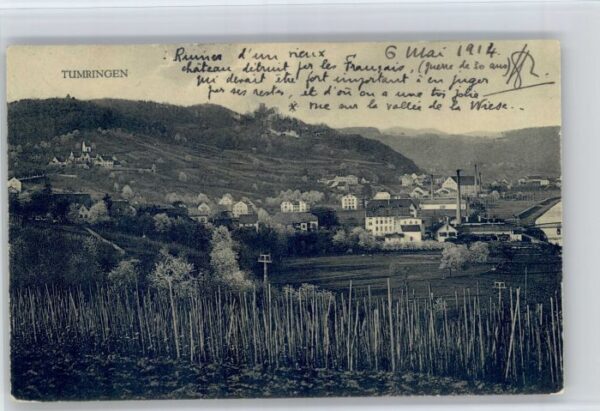 TUMRINGEN
6 Mai 1914
Ruines d'un vieux
château détruit par les Français, (guerre de 30 ans)
qui devait être fort important à en juger
par ses restes, et d'où on a une très jolie
* vue sur la vallée de la Wiese...